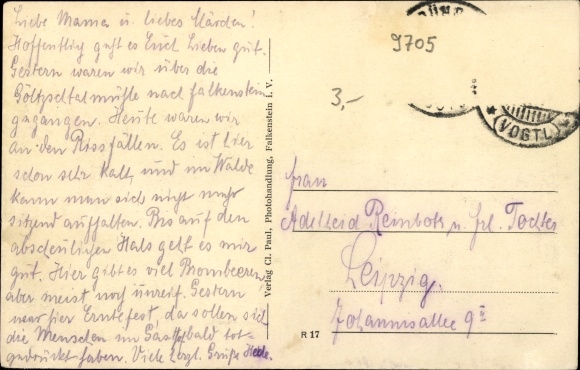 Liebe Mama u. liebes Märchen!
Hoffentlich geht es Euch Lieben gut.
Gestern waren wir über die
Göltzschtalmühle nach Falkenstein
gegangen. Heute waren wir
an den Rissfällen. Es ist hier
schon sehr kalt, und im Walde
kann man sich nicht mehr
sitzend aufhalten. Bis auf den
abscheulichen Hals geht es mir
gut. Hier gibt es viel Brombeeren,
aber meist noch unreif. Gestern
war hier Erntefest, da sollen sich
die Menschen im Gasthof bald tot-
gedrückt haben. Viele herzl. Grüße Hede.
Verlag Cl. Paul, Photohandlung, Falkenstein i. V.
9705
3,-
(VOGTL)
Frau
Adelheid Reinbok u. Frl. Tochter
Leipzig.
Johannisallee 9 I
R 17